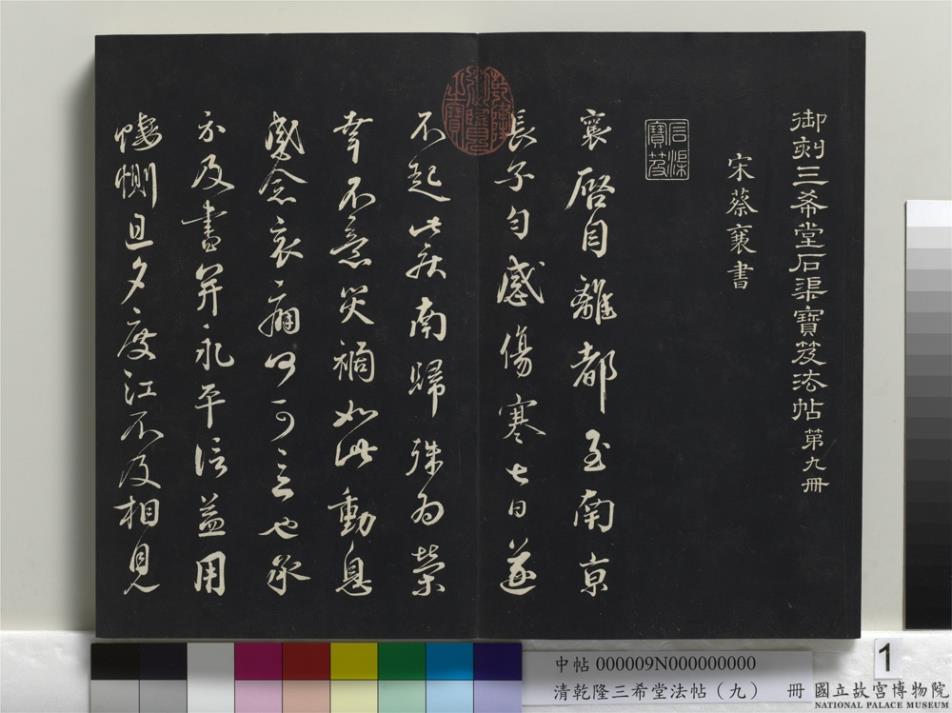 御刻三希堂石渠寶笈法帖第九冊
宋蔡襄書
石渠寶笈
襄啓自離都至南京
長子勻感傷寒七日遂
不起此疾南歸殊為榮
幸不意災禍如此動息
感念哀痛何可言也承
示及書并永平信益用
悽惻旦夕度江不及相見
中帖 000009N000000000
清乾隆三希堂法帖（九） 冊
1
國立故宮博物院
NATIONAL PALACE MUSEUM